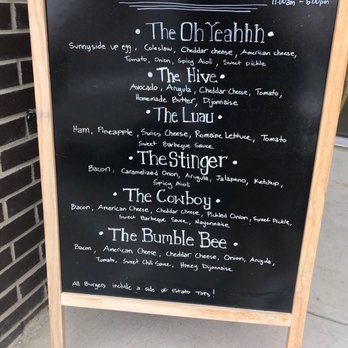 11:00am - 6:00pm
• The Oh Yeahhh •
Sunnyside up egg, Coleslaw, Cheddar cheese, American cheese,
Tomato, Onion, Spicy Aioli, Sweet Pickle
• The Hive •
Avocado, Arugula, Cheddar Cheese, Tomato,
Homemade Butter, Dijonnaise
• The Luau •
Ham, Pineapple, Swiss Cheese, Romaine Lettuce, Tomato
Sweet Barbeque Sauce
• The Stinger •
Bacon, Caramelized Onion, Arugula, Jalapeno, Ketchup,
Spicy Aioli
• The Cowboy •
Bacon, American Cheese, Cheddar Cheese, Pickled Onion, Sweet Pickle,
Sweet Barbeque Sauce, Mayonnaise
• The Bumble Bee •
Bacon, American Cheese, Cheddar Cheese, Onion, Arugula,
Tomato, Sweet Chili Sauce, Honey Dijonnaise
All Burgers include a side of Potato Tots!